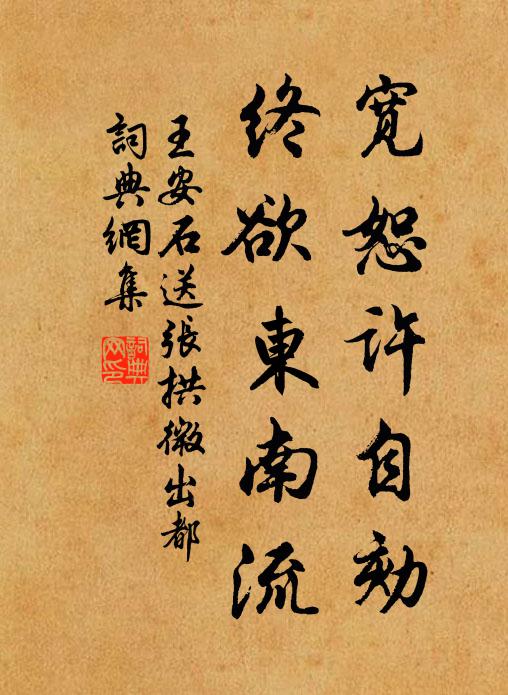 寬恕許自劾
終欲東南流
王安石送張拱微出都
詞典網集
詞典網印